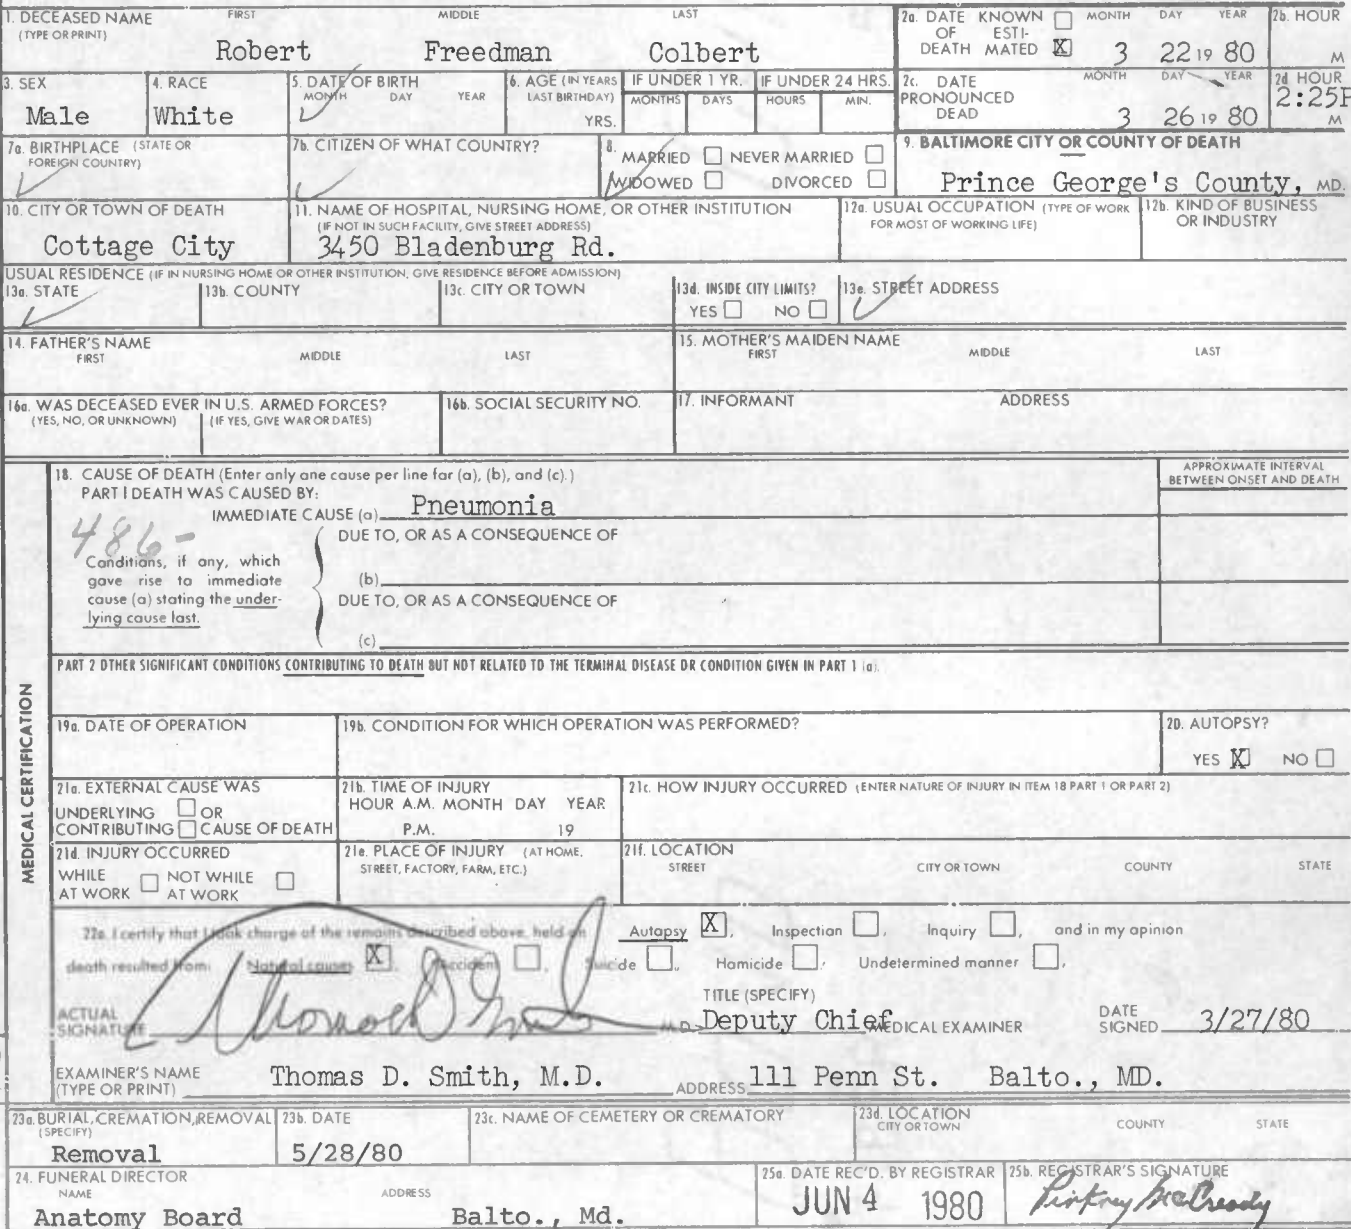 1. DECEASED NAME FIRST MIDDLE LAST
(TYPE OR PRINT)
Robert Freedman Colbert
2a. DATE KNOWN ☐ MONTH DAY YEAR
OF ESTI-
DEATH MATED ☒ 3 22 19 80
2b. HOUR
M
3. SEX
Male
4. RACE
White
5. DATE OF BIRTH
MONTH DAY YEAR
6. AGE (IN YEARS
LAST BIRTHDAY)
YRS.
IF UNDER 1 YR.
MONTHS DAYS
IF UNDER 24 HRS.
HOURS MIN.
2c. DATE MONTH DAY YEAR
PRONOUNCED
DEAD 3 26 19 80
2d HOUR
2:25P
M
7a. BIRTHPLACE (STATE OR
FOREIGN COUNTRY)
7b. CITIZEN OF WHAT COUNTRY?
8.
MARRIED ☐ NEVER MARRIED ☐
WIDOWED ☐ DIVORCED ☐
9. BALTIMORE CITY OR COUNTY OF DEATH
Prince George's County, MD.
10. CITY OR TOWN OF DEATH
Cottage City
11. NAME OF HOSPITAL, NURSING HOME, OR OTHER INSTITUTION
(IF NOT IN SUCH FACILITY, GIVE STREET ADDRESS)
3450 Bladenburg Rd.
12a. USUAL OCCUPATION (TYPE OF WORK
FOR MOST OF WORKING LIFE)
12b. KIND OF BUSINESS
OR INDUSTRY
USUAL RESIDENCE (IF IN NURSING HOME OR OTHER INSTITUTION, GIVE RESIDENCE BEFORE ADMISSION)
13a. STATE
13b. COUNTY
13c. CITY OR TOWN
13d. INSIDE CITY LIMITS?
YES ☐ NO ☐
13e. STREET ADDRESS
14. FATHER'S NAME
FIRST MIDDLE LAST
15. MOTHER'S MAIDEN NAME
FIRST MIDDLE LAST
16a. WAS DECEASED EVER IN U.S. ARMED FORCES?
(YES, NO, OR UNKNOWN) (IF YES, GIVE WAR OR DATES)
16b. SOCIAL SECURITY NO.
17. INFORMANT ADDRESS
MEDICAL CERTIFICATION
18. CAUSE OF DEATH (Enter only one cause per line for (a), (b), and (c).)
PART I DEATH WAS CAUSED BY:
IMMEDIATE CAUSE (a) Pneumonia
APPROXIMATE INTERVAL
BETWEEN ONSET AND DEATH
486-
DUE TO, OR AS A CONSEQUENCE OF
Conditions, if any, which
gave rise to immediate
cause (a) stating the under-
lying cause last.
(b)
DUE TO, OR AS A CONSEQUENCE OF
(c)
PART 2 OTHER SIGNIFICANT CONDITIONS CONTRIBUTING TO DEATH BUT NOT RELATED TO THE TERMINAL DISEASE OR CONDITION GIVEN IN PART 1 (a).
19a. DATE OF OPERATION
19b. CONDITION FOR WHICH OPERATION WAS PERFORMED?
20. AUTOPSY?
YES ☒ NO ☐
21a. EXTERNAL CAUSE WAS
UNDERLYING ☐ OR
CONTRIBUTING ☐ CAUSE OF DEATH
21b. TIME OF INJURY
HOUR A.M. MONTH DAY YEAR
P.M. 19
21c. HOW INJURY OCCURRED (ENTER NATURE OF INJURY IN ITEM 18 PART 1 OR PART 2)
21d. INJURY OCCURRED
WHILE ☐ NOT WHILE ☐
AT WORK AT WORK
21e. PLACE OF INJURY (AT HOME,
STREET, FACTORY, FARM, ETC.)
21f. LOCATION
STREET CITY OR TOWN COUNTY STATE
22a. I certify that I took charge of the remains described above, held an Autopsy ☒, Inspection ☐, Inquiry ☐, and in my opinion
death resulted from: Natural causes ☒, Accident ☐, Suicide ☐, Homicide ☐, Undetermined manner ☐,
ACTUAL
SIGNATURE M.D.
TITLE (SPECIFY)
Deputy Chief MEDICAL EXAMINER
DATE
SIGNED 3/27/80
EXAMINER'S NAME
(TYPE OR PRINT) Thomas D. Smith, M.D. ADDRESS 111 Penn St. Balto., MD.
23a. BURIAL, CREMATION, REMOVAL
(SPECIFY)
Removal
23b. DATE
5/28/80
23c. NAME OF CEMETERY OR CREMATORY
23d. LOCATION
CITY OR TOWN COUNTY STATE
24. FUNERAL DIRECTOR
NAME ADDRESS
Anatomy Board Balto., Md.
25a. DATE REC'D. BY REGISTRAR
JUN 4 1980
25b. REGISTRAR'S SIGNATURE